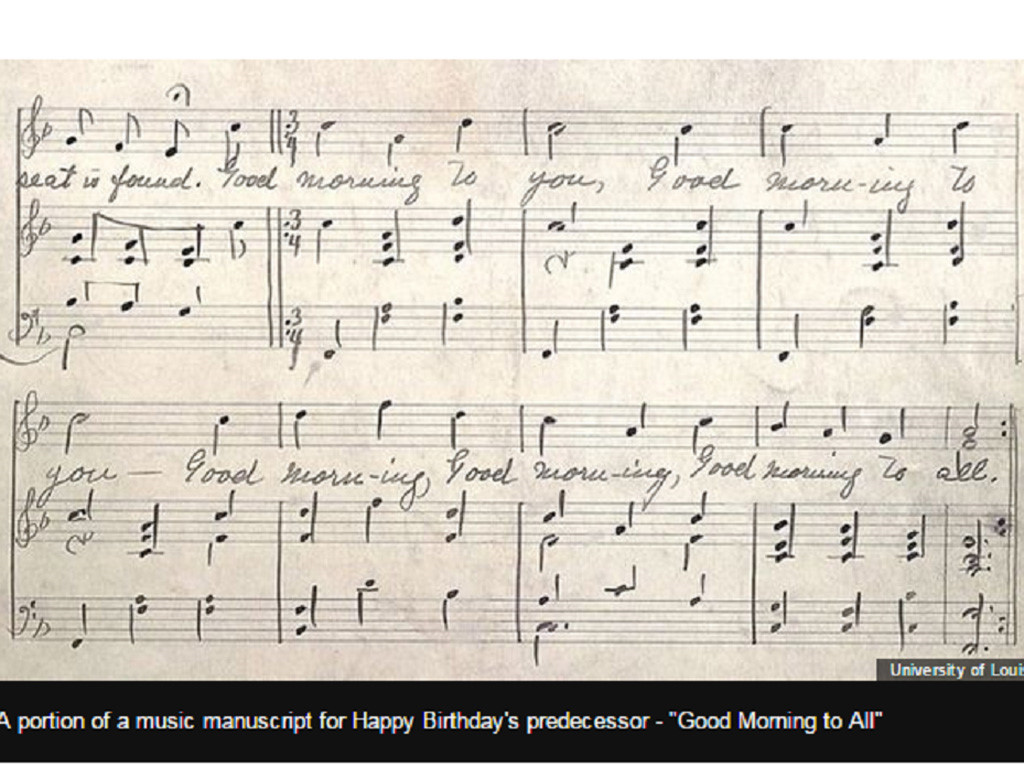 seat is found. Good morning to you, Good morn-ing to
you — Good morn-ing, Good morn-ing, Good morning to all.
University of Louis
A portion of a music manuscript for Happy Birthday's predecessor - "Good Morning to All"